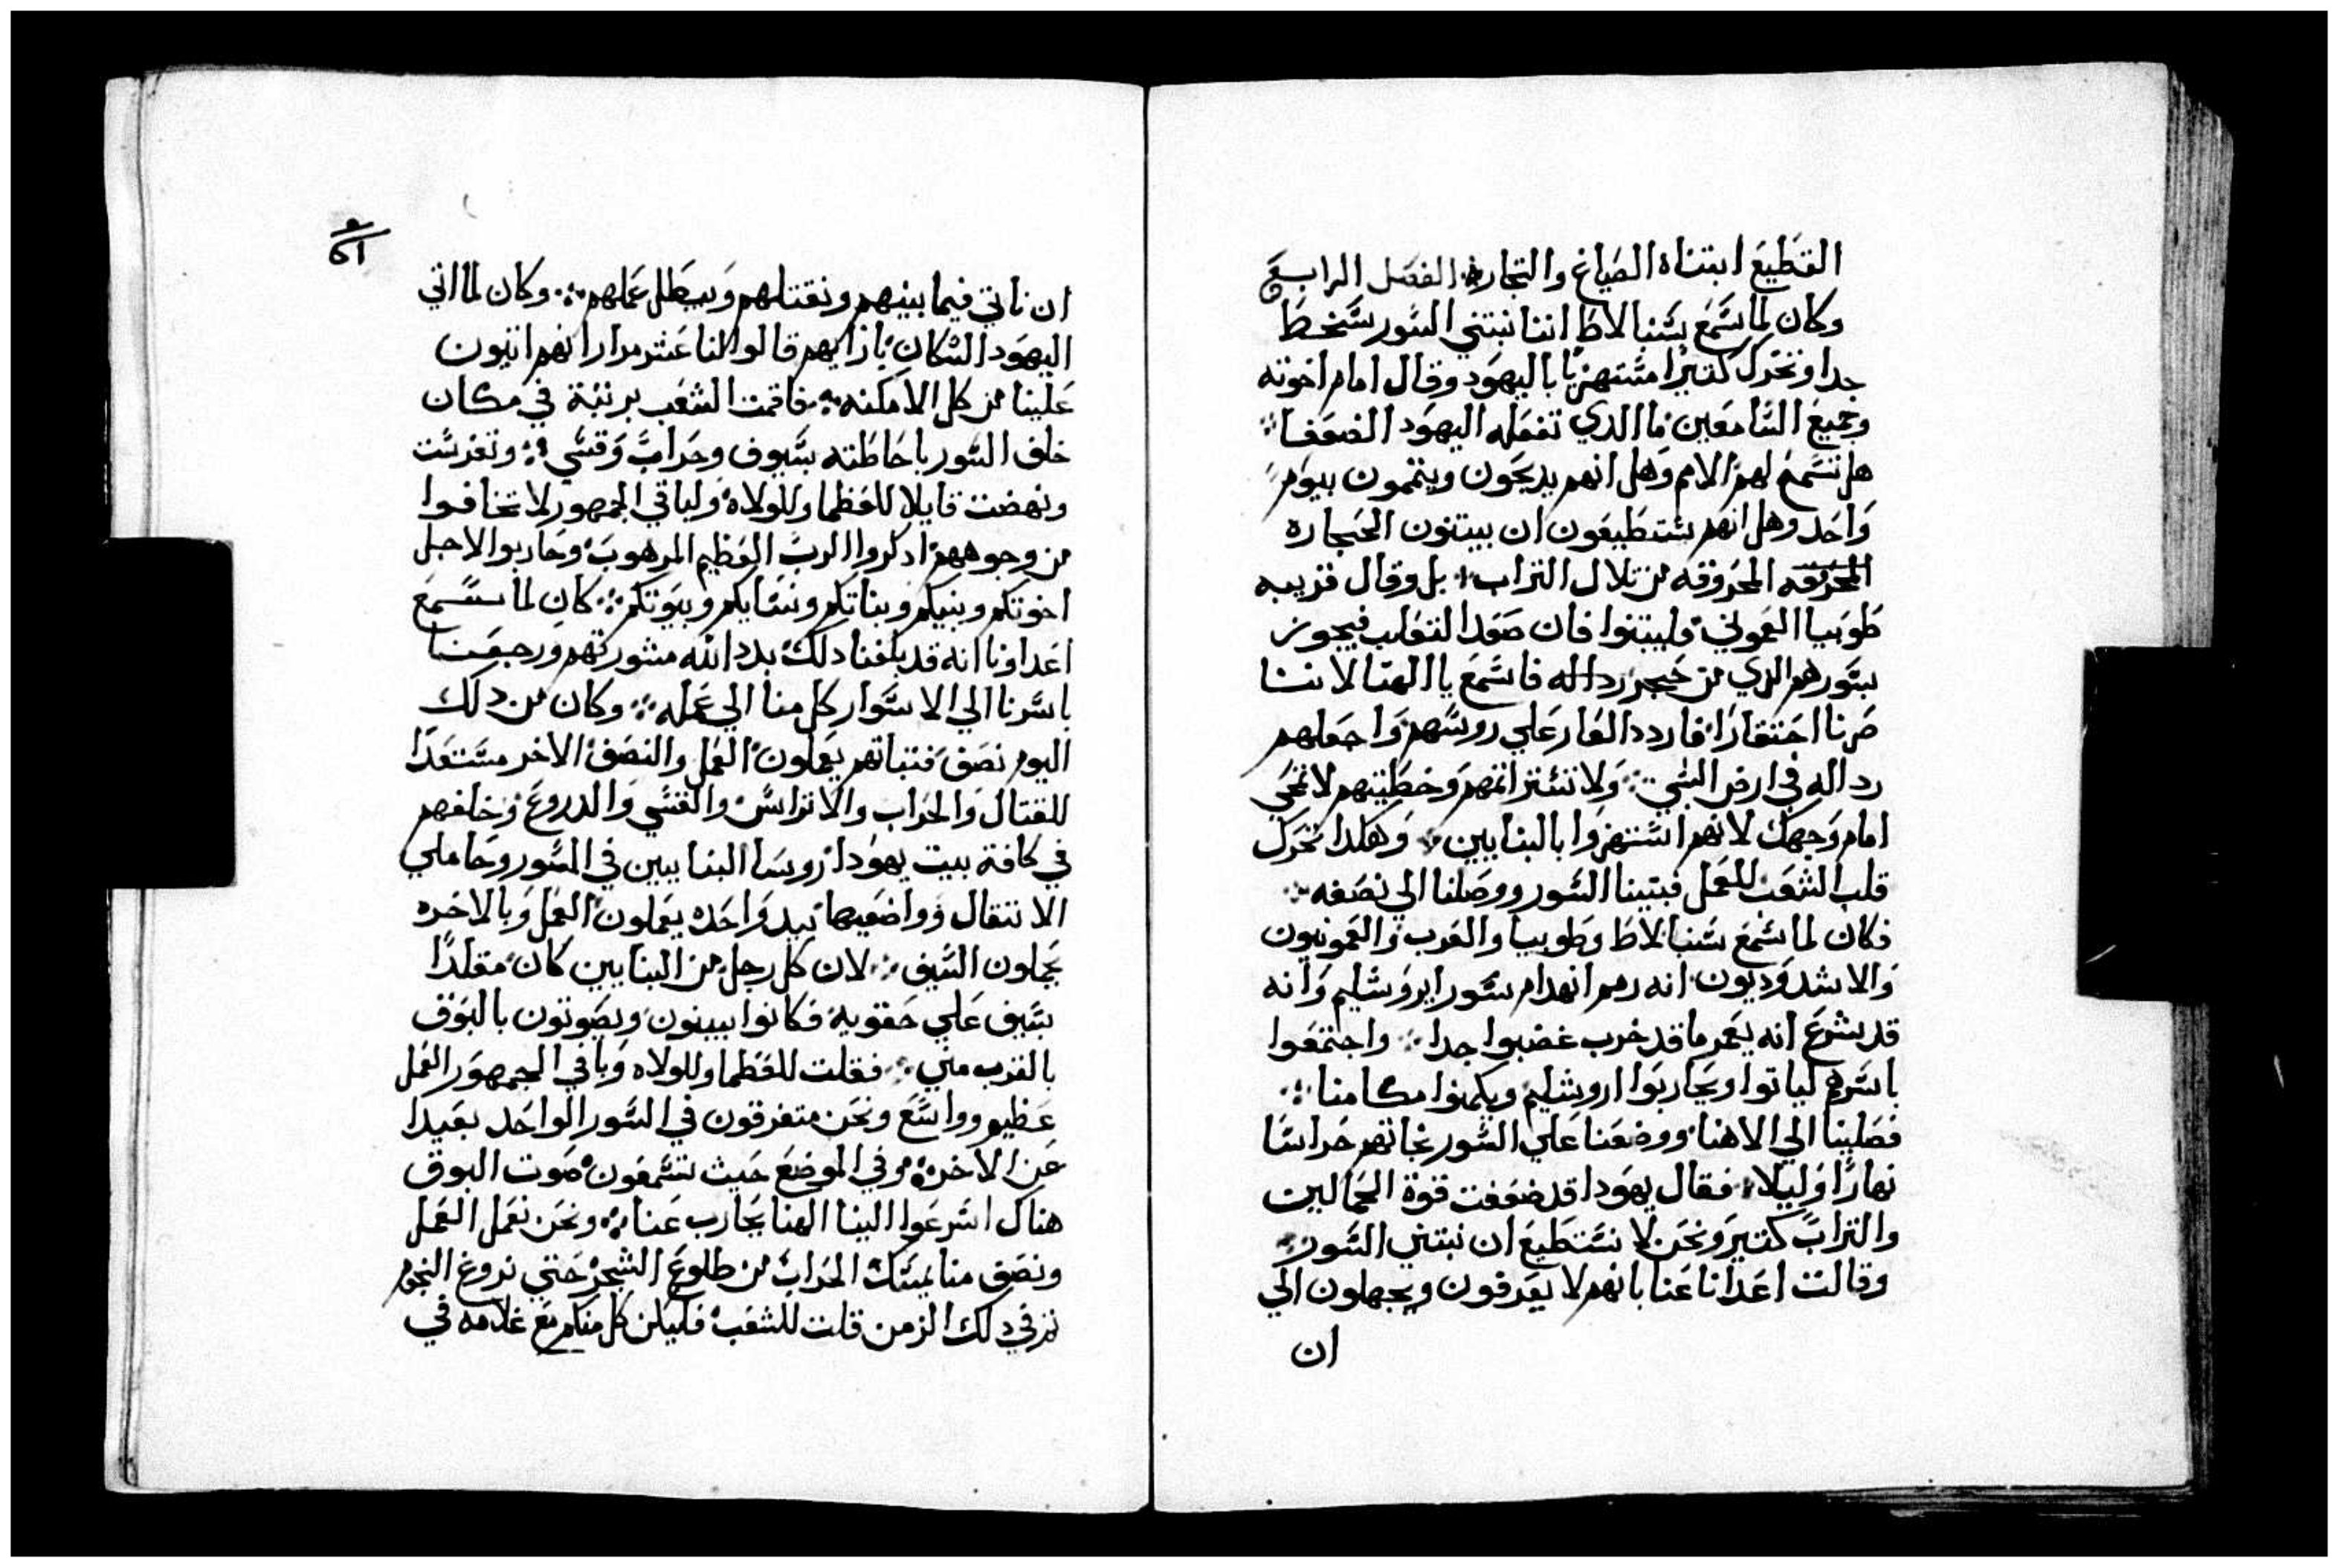 القطيع ابتناه الصياغ والتجار ۞ الفصل الرابع
وكان لما سمع سنبالاط اننا نبتني السور سخط
جدا وتحرك كتيرا مستهزيا باليهود وقال امام اخوته
وجميع السامعين ما الدي تفعله اليهود الضعفا ∴
هل تسمح لهم الامم وهل انهم يدبحون ويتممون بيوم
واحد وهل انهم يستطيعون ان يبتنون الحجاره
المحرقه المحروقه من تلال التراب ∴ بل وقال قريبه
طوبيا العموني وليبتنوا فان صعد التعلب فيجوز
بسورهم الدي من حجر رداله فاسمع يا الهنا لاننا
صرنا احتقارا فاردد العار علي روسهم واجعلهم
رداله في ارض السبي ∴ ولا تستر اتمهم وخطيتهم لا تمحي
امام وجهك لانهم استهزوا بالبنايين ∴ وهكدا تحرك
قلب الشعب للعمل فبنينا السور ووصلنا الي نصفه ∴
فكان لما سمع سنبالاط وطوبيا والعرب والعمونيون
والاشدوديون انه رمم انهدام سور ايروشليم وانه
قد شرع انه يعمر ما قد خرب غضبوا جدا ∴ واجتمعوا
باسرهم لياتوا ويحاربوا اروشليم ويكمنوا مكامنا ∴
فصلينا الي الاهنا ووضعنا علي السور تجاتهم حراسا
نهارا وليلا ∴ فقال يهودا قد ضعفت قوة الحمالين
والتراب كتير ونحن لا نستطيع ان نبتني السور ∴
وقالت اعدانا عنا بانهم لا يعرفون ويجهلون الي
ان
ان ناتي فيما بينهم ونقتلهم ويبطل عملهم ∴ وكان لما اتي
اليهود السكان بازايهم قالوا لنا عشر مرارا انهم اتيون
علينا من كل الامكنه ∴ فاقمت الشعب برتبة في مكان
خلف السور باحاطته بسيوف وحراب وقسي ∴ وتفرست
ونهضت قايلا للعظما وللولاه ولباقي الجمهور لا تخافوا
من وجوههم ادكروا الرب العظيم المرهوب وحاربوا لاجل
اخوتكم وبنيكم وبناتكم ونسايكم وبيوتكم ∴ كان لما سمع
اعداونا انه قد بلغنا دلك بدد الله مشورتهم ورجعنا
باسرنا الي الاسوار كل منا الي عمله ∴ وكان من دلك
اليوم نصف فتيانهم يعملون العمل والنصف الاخر مستعدا
للقتال والحراب والاتراس والقسي والدروع وخلفهم
في كافة بيت يهودا روسا البنايين في السور وحاملي
الاتتقال وواضعيها بيد واحده يعملون العمل وبالاخره
يحملون السيف ∴ لان كل رجل من البنايين كان مقلدا
بسيف علي حقويه فكانوا يبنون ويصوتون بالبوق
بالقرب مني ∴ فقلت للعظما وللولاه وباقي الجمهور العمل
عظيم وواسع ونحن متفرقون في السور الواحد بعيدا
عن الاخر ∴ وفي الموضع حيث تسمعون صوت البوق
هناك اسرعوا الينا الهنا يحارب عنا ∴ ونحن نعمل العمل
ونصف منا يمسك الحراب من طلوع الشحر حتي نروغ النجوم
تم في دلك الزمن قلت للشعب فليكن كل منكم مع غلامه في